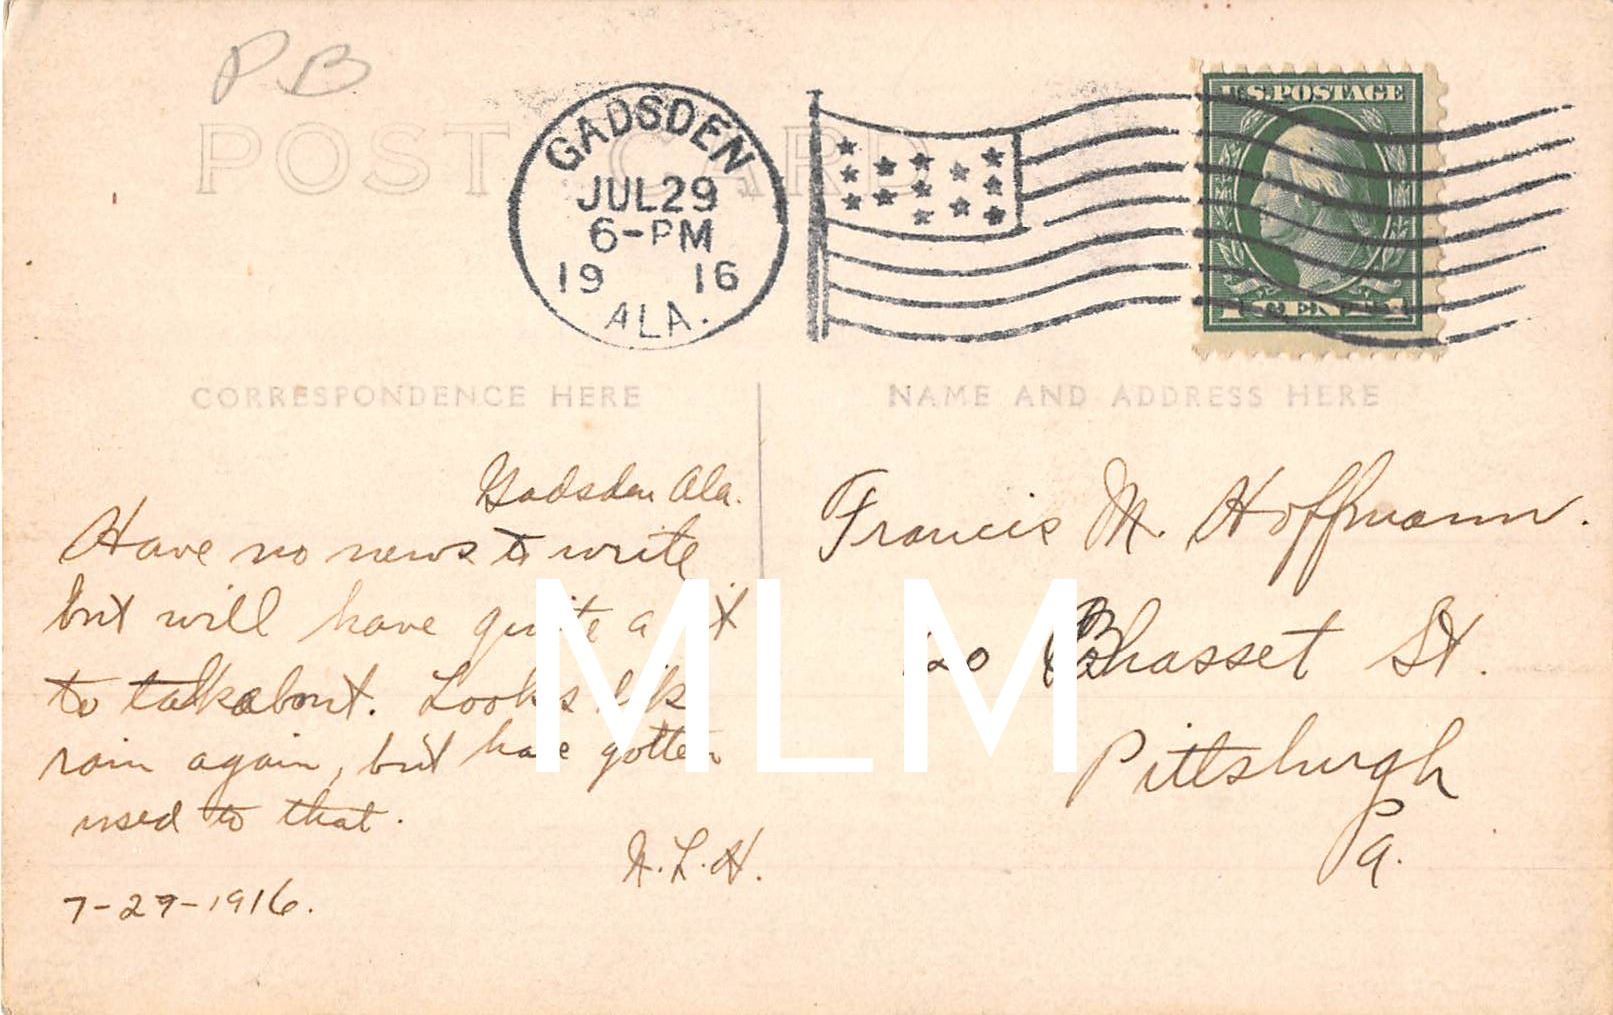 PB
POST CARD
GADSDEN
JUL 29
6-PM
19 16
ALA.
U.S. POSTAGE
1 CENT 1
CORRESPONDENCE HERE
NAME AND ADDRESS HERE
Gadsden Ala.
Have no news to write
but will have quite a
to talk about. Looks like
rain again, but have gotten
used to that.
N. L. H.
7-29-1916.
Francis M. Hoffmann.
20 St.
Pittsburgh
Pa.
MLM